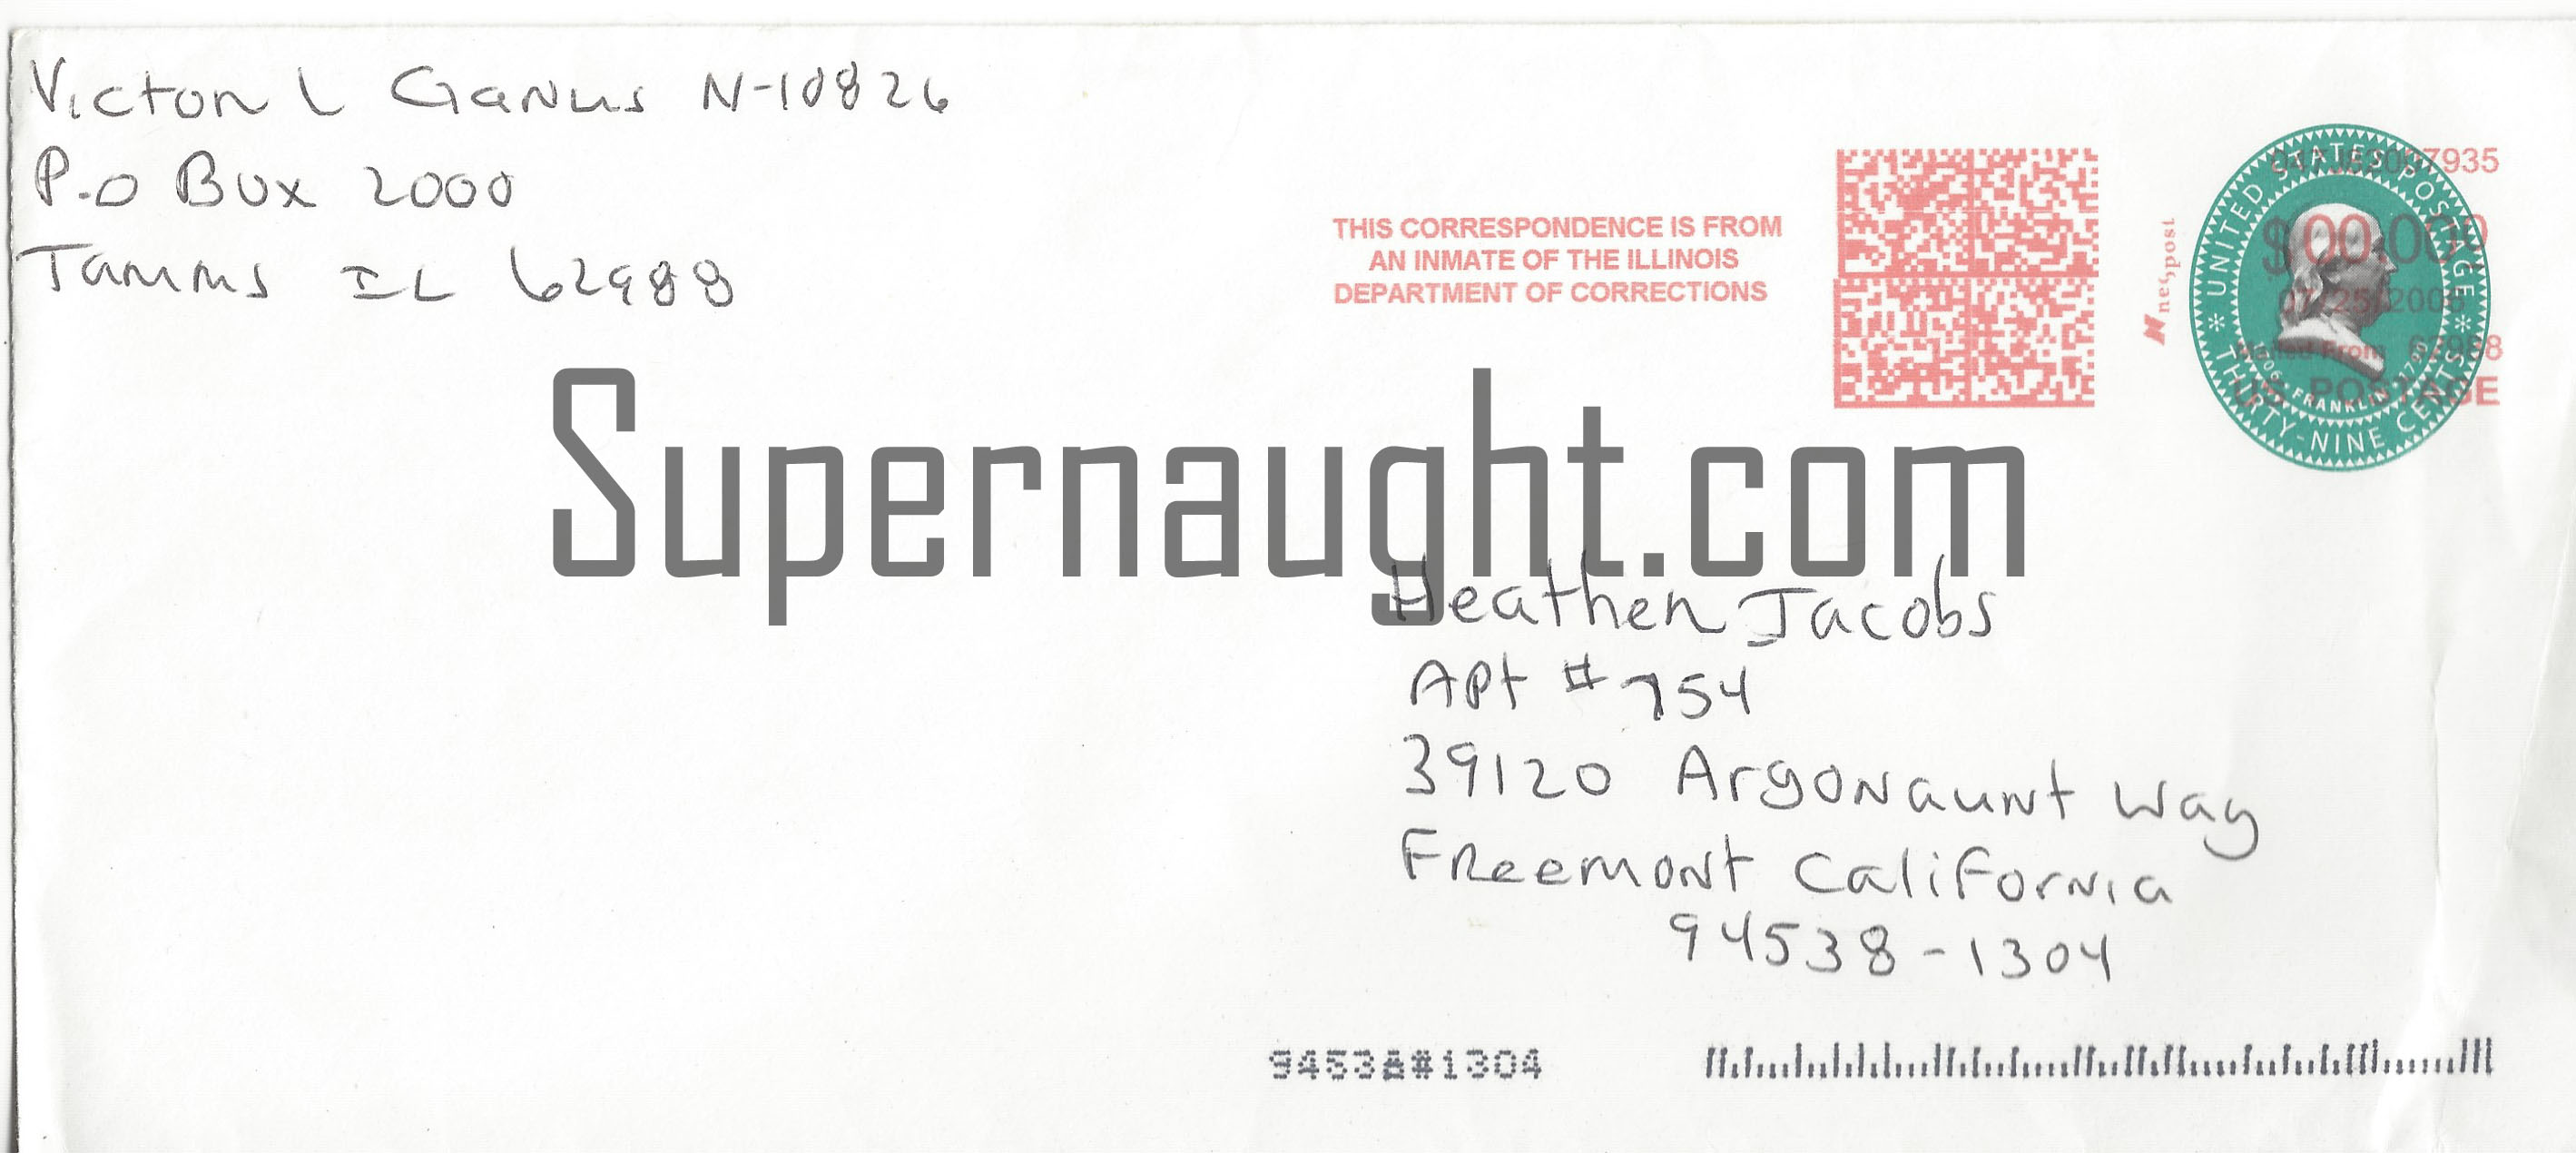 Victor L Ganus N-10826
P.O Box 2000
Tamms IL 62988
THIS CORRESPONDENCE IS FROM
AN INMATE OF THE ILLINOIS
DEPARTMENT OF CORRECTIONS
neopost
7935
$00.00
07/25/2006
Mailed From 62988
US POSTAGE
UNITED STATES POSTAGE
1706 FRANKLIN 1790
THIRTY-NINE CENTS
Supernaught.com
Heather Jacobs
Apt # 754
39120 Argonaunt Way
Freemont California
94538-1304
94538#1304